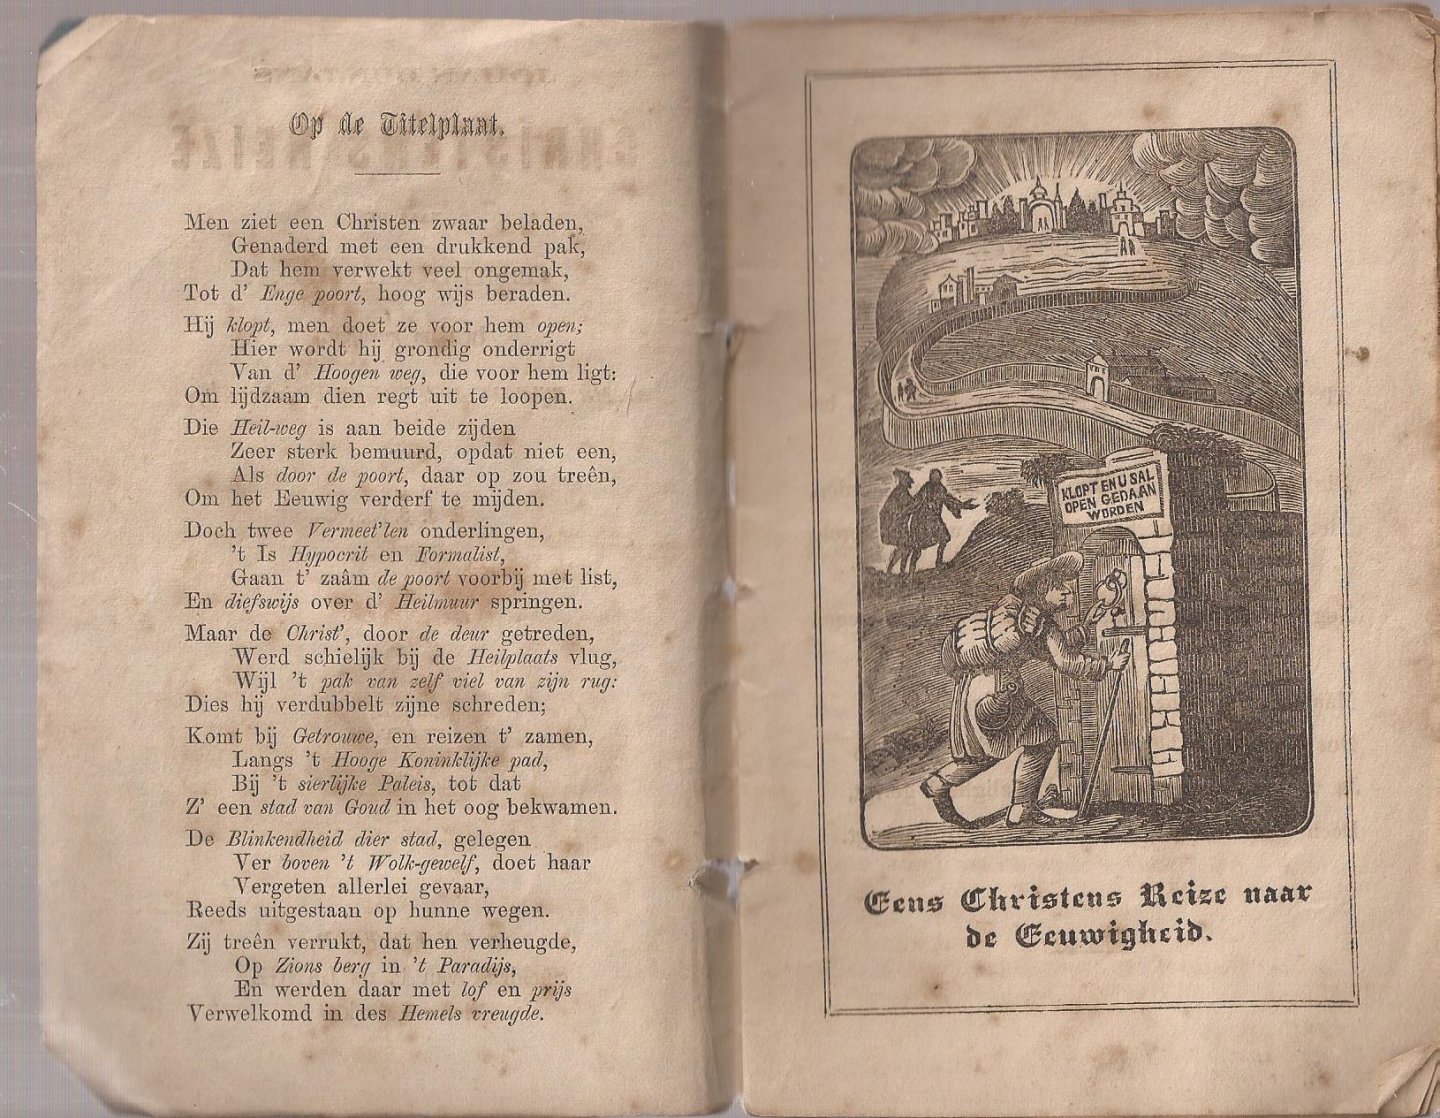 Op de Titelplaat.
Men ziet een Christen zwaar beladen,
Genaderd met een drukkend pak,
Dat hem verwekt veel ongemak,
Tot d' Enge poort, hoog wijs beraden.
Hij klopt, men doet ze voor hem open;
Hier wordt hij grondig onderrigt
Van d' Hoogen weg, die voor hem ligt:
Om lijdzaam dien regt uit te loopen.
Die Heil-weg is aan beide zijden
Zeer sterk bemuurd, opdat niet een,
Als door de poort, daar op zou treên,
Om het Eeuwig verderf te mijden.
Doch twee Vermeet'len onderlingen,
't Is Hypocrit en Formalist,
Gaan t' zaâm de poort voorbij met list,
En diefswijs over d' Heilmuur springen.
Maar de Christ', door de deur getreden,
Werd schielijk bij de Heilplaats vlug,
Wijl 't pak van zelf viel van zijn rug:
Dies hij verdubbelt zijne schreden;
Komt bij Getrouwe, en reizen t' zamen,
Langs 't Hooge Koninklijke pad,
Bij 't sierlijke Paleis, tot dat
Z' een stad van Goud in het oog bekwamen.
De Blinkendheid dier stad, gelegen
Ver boven 't Wolk-gewelf, doet haar
Vergeten allerlei gevaar,
Reeds uitgestaan op hunne wegen.
Zij treên verrukt, dat hen verheugde,
Op Zions berg in 't Paradijs,
En werden daar met lof en prijs
Verwelkomd in des Hemels vreugde.
KLOPT EN U SAL
OPEN GEDAAN
WORDEN
Eens Christens Reize naar
de Eeuwigheid.